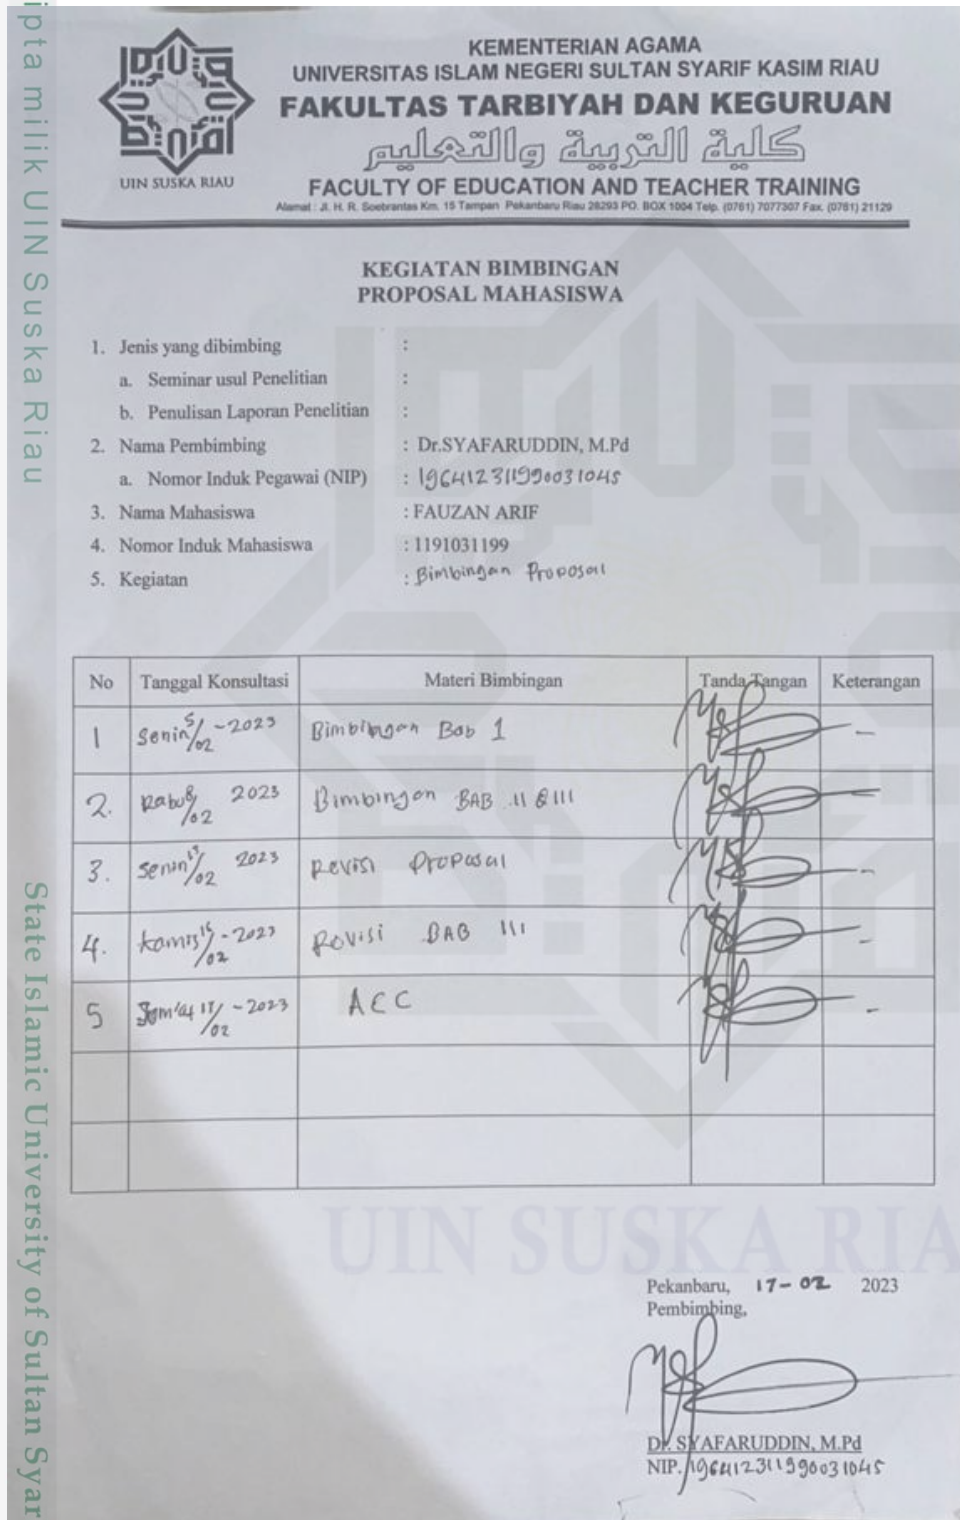 ipta milik UIN Suska Riau
State Islamic University of Sultan Syar
UIN SUSKA RIAU
KEMENTERIAN AGAMA
UNIVERSITAS ISLAM NEGERI SULTAN SYARIF KASIM RIAU
FAKULTAS TARBIYAH DAN KEGURUAN
كلية التربية والتعليم
FACULTY OF EDUCATION AND TEACHER TRAINING
Alamat : Jl. H. R. Soebrantas Km. 15 Tampan Pekanbaru Riau 28293 PO. BOX 1004 Telp. (0761) 7077307 Fax. (0761) 21129
KEGIATAN BIMBINGAN
PROPOSAL MAHASISWA
1. Jenis yang dibimbing :
a. Seminar usul Penelitian :
b. Penulisan Laporan Penelitian :
2. Nama Pembimbing : Dr.SYAFARUDDIN, M.Pd
a. Nomor Induk Pegawai (NIP) : 196412311990031045
3. Nama Mahasiswa : FAUZAN ARIF
4. Nomor Induk Mahasiswa : 1191031199
5. Kegiatan : Bimbingan Proposal
No Tanggal Konsultasi Materi Bimbingan Tanda Tangan Keterangan
1 Senin /02 - 2023 Bimbingan Bab 1 -
2. Rabu 8/02 2023 Bimbingan BAB II & III -
3. Senin /02 2023 Revisi Proposal -
4. Kamis /02 - 2023 Revisi BAB III -
5 /02 - 2023 ACC -
UIN SUSKA RIA
Pekanbaru, 17-02 2023
Pembimbing,
Dr. SYAFARUDDIN, M.Pd
NIP. 196412311990031045